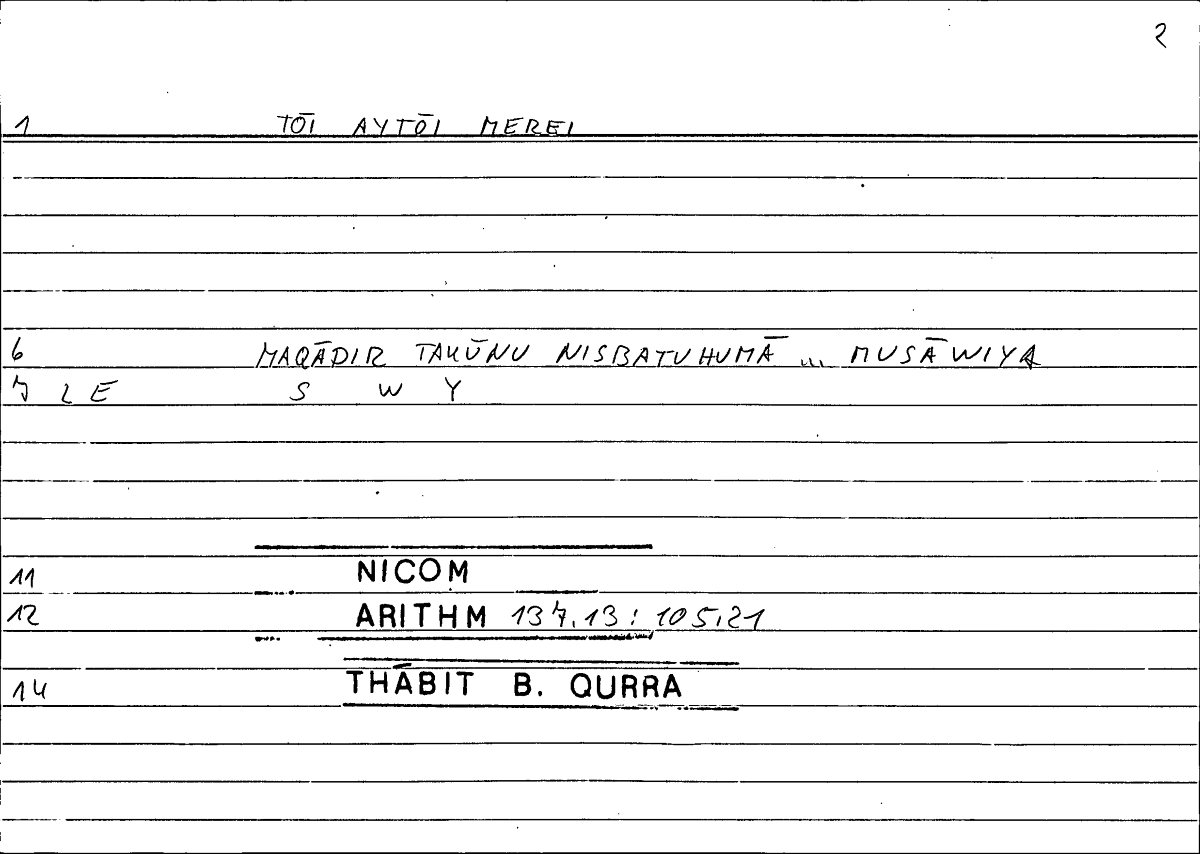 2
1 TŌI AYTŌI MEREI
6 MAQĀDIR TAKŪNU NISBATUHUMĀ ... MUSĀWIYA
7 LE S W Y
11 NICOM
12 ARITHM 137.13 : 105.21
14 THĀBIT B. QURRA